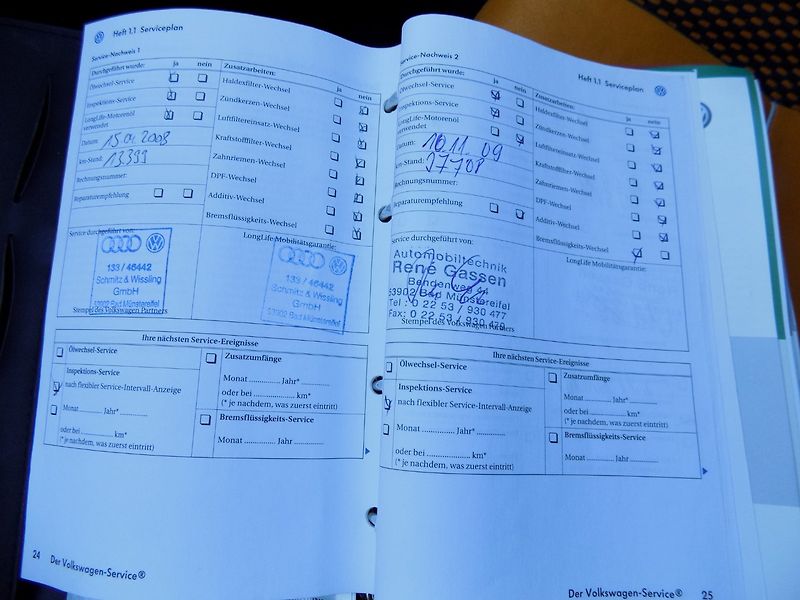 Heft 1.1 Serviceplan
Service-Nachweis 1
Durchgeführt wurde: ja nein
Ölwechsel-Service
Inspektions-Service
LongLife-Motorenöl
verwendet
Datum: 15.04.2008
km-Stand: 13399
Rechnungsnummer:
Reparaturempfehlung
Zusatzarbeiten: ja nein
Haldexfilter-Wechsel
Zündkerzen-Wechsel
Luftfiltereinsatz-Wechsel
Kraftstofffilter-Wechsel
Zahnriemen-Wechsel
DPF-Wechsel
Additiv-Wechsel
Bremsflüssigkeits-Wechsel
Service durchgeführt von:
133 / 46442
Schmitz & Wissling
GmbH
53902 Bad Münstereifel
Stempel des Volkswagen Partners
LongLife Mobilitätsgarantie:
133 / 46442
Schmitz & Wissling
GmbH
53902 Bad Münstereifel
Ihre nächsten Service-Ereignisse
Ölwechsel-Service
Inspektions-Service
nach flexibler Service-Intervall-Anzeige
Monat ............ Jahr* ............
oder bei ............ km*
(* je nachdem, was zuerst eintritt)
Zusatzumfänge
Monat ............ Jahr* ............
oder bei ............ km*
(* je nachdem, was zuerst eintritt)
Bremsflüssigkeits-Service
Monat ............ Jahr ............
24 Der Volkswagen-Service®
Heft 1.1 Serviceplan
Service-Nachweis 2
Durchgeführt wurde: ja nein
Ölwechsel-Service
Inspektions-Service
LongLife-Motorenöl
verwendet
Datum: 10.11.09
km-Stand: 27708
Rechnungsnummer:
Reparaturempfehlung
Zusatzarbeiten: ja nein
Haldexfilter-Wechsel
Zündkerzen-Wechsel
Luftfiltereinsatz-Wechsel
Kraftstofffilter-Wechsel
Zahnriemen-Wechsel
DPF-Wechsel
Additiv-Wechsel
Bremsflüssigkeits-Wechsel
Service durchgeführt von:
Automobiltechnik
René Gassen
Bendenweg
53902 Bad Münstereifel
Tel : 0 22 53 / 930 477
Fax: 0 22 53 / 930 479
Stempel des Volkswagen Partners
LongLife Mobilitätsgarantie:
Ihre nächsten Service-Ereignisse
Ölwechsel-Service
Inspektions-Service
nach flexibler Service-Intervall-Anzeige
Monat ............ Jahr* ............
oder bei ............ km*
(* je nachdem, was zuerst eintritt)
Zusatzumfänge
Monat ............ Jahr* ............
oder bei ............ km*
(* je nachdem, was zuerst eintritt)
Bremsflüssigkeits-Service
Monat ............ Jahr ............
Der Volkswagen-Service® 25